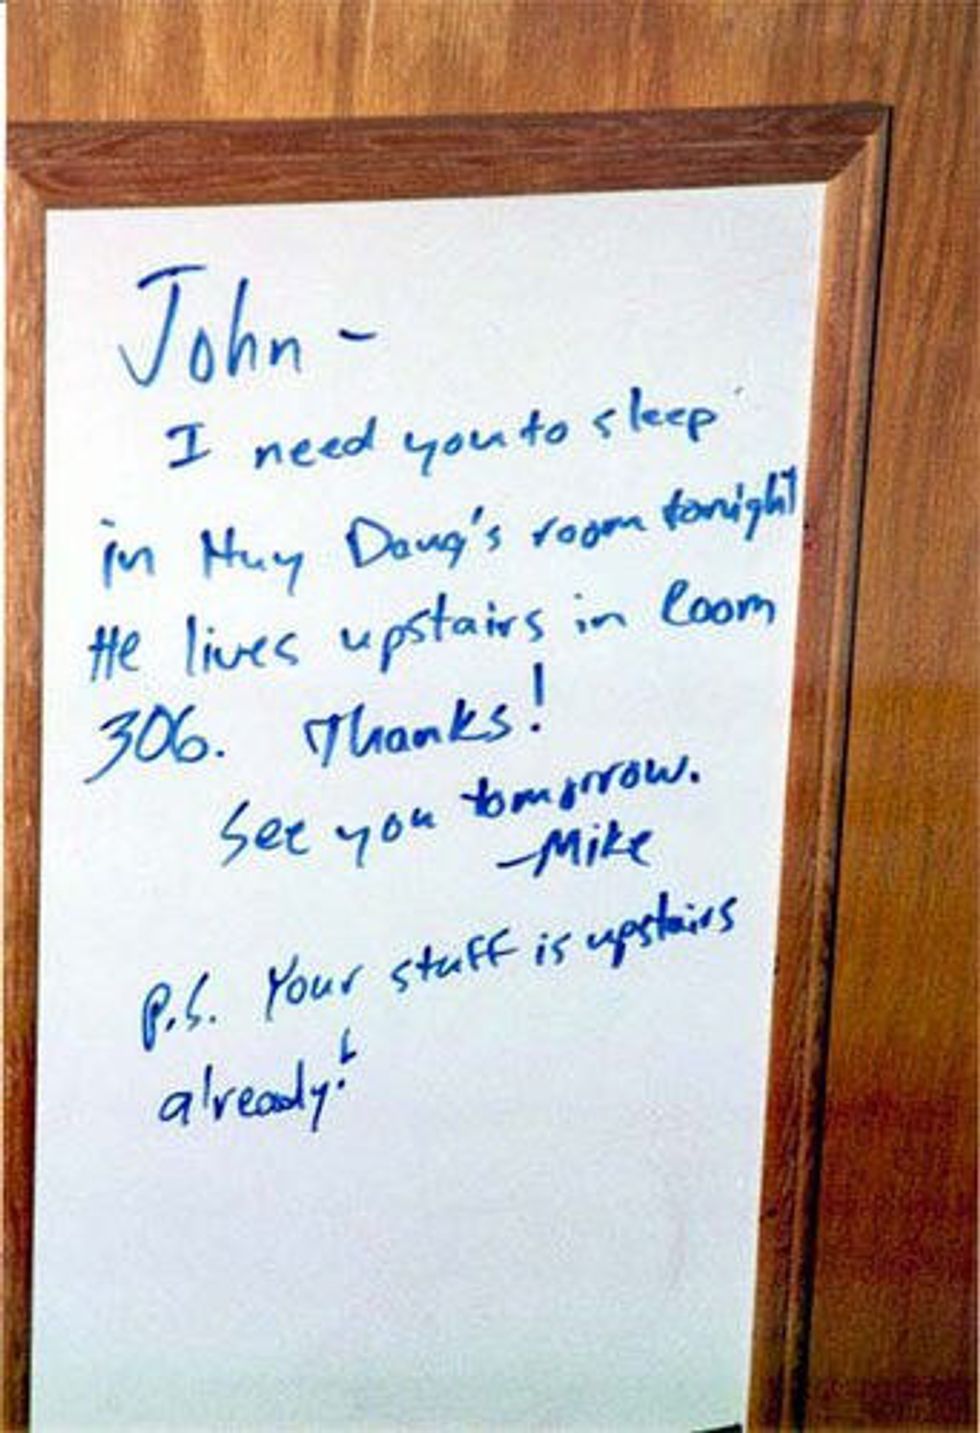 John -
I need you to sleep
in Huy Dang's room tonight
He lives upstairs in Room
306. Thanks!
See you tomorrow.
-Mike
P.S. Your stuff is upstairs
already!